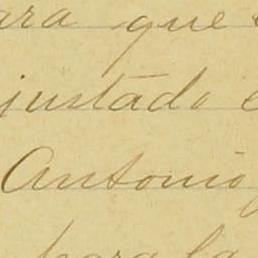 ara que
justado e
Antonio
para la